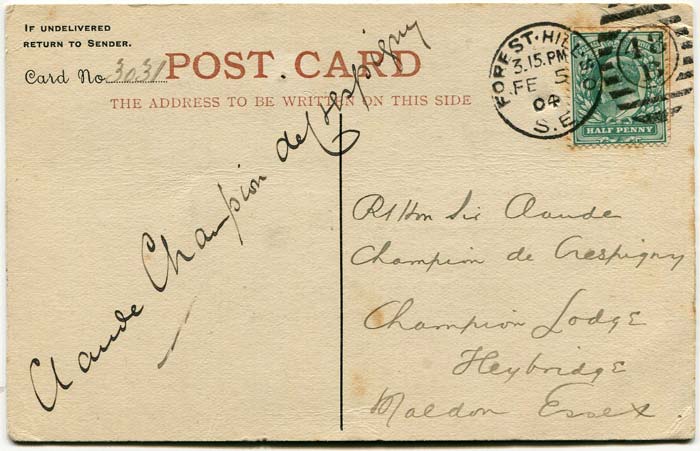 IF UNDELIVERED
RETURN TO SENDER.
Card No 3031
POST CARD
THE ADDRESS TO BE WRITTEN ON THIS SIDE
FOREST-HILL S.O
3.15.PM
FE 5
04
S.E.
HALF PENNY
Claude Champion de Crespigny
Rt Hon Sir Claude
Champion de Crespigny
Champion Lodge
Heybridge
Maldon Essex